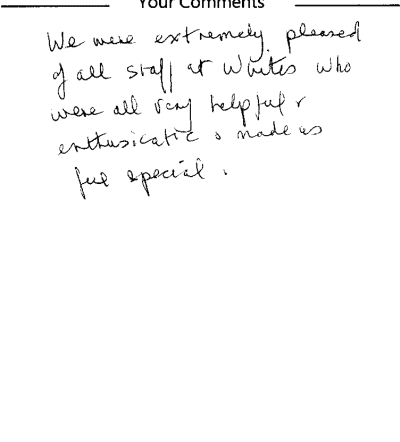 Your Comments
We were extremely pleased
of all staff at Whites who
were all very helpful &
enthusicatic & made us
feel special.